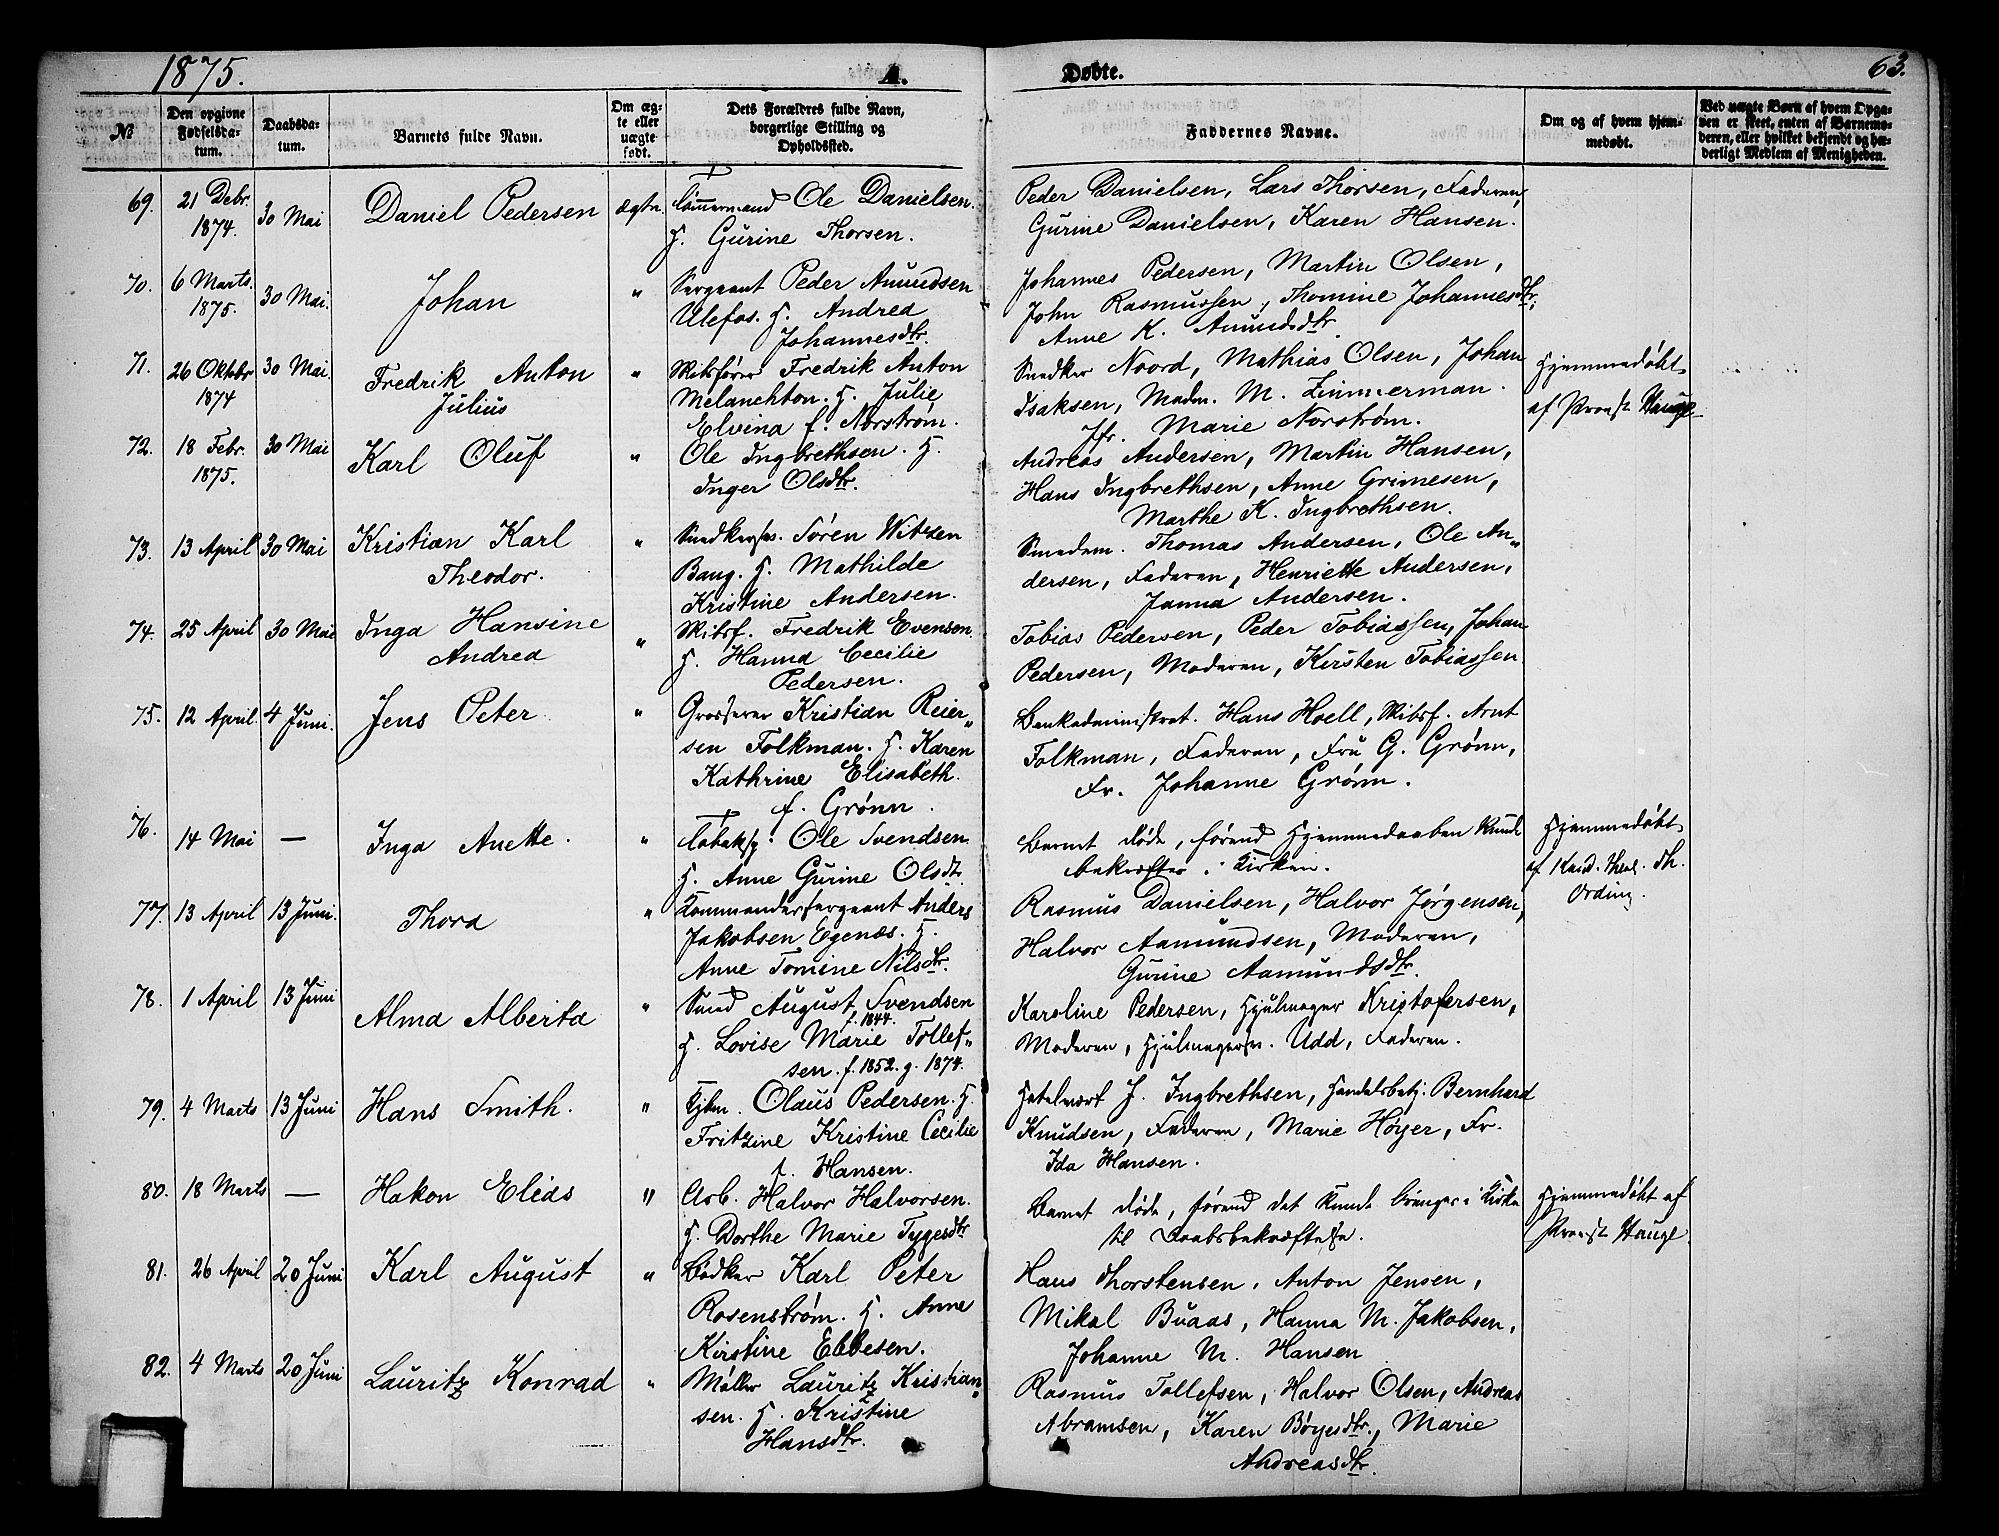 1875.
A.
Døbte.
63.
№
Den opgivne Fødselsdatum.
Daabsdatum.
Barnets fulde Navn.
Om ægte eller uægte født.
Dets Forældres fulde Navn, borgerlige Stilling og Opholdssted.
Faddernes Navne.
Om og af hvem hjemmedøbt.
Ved uægte Børn af hvem Opgaven er skeet, enten af Barnemoderen, eller hvilket bekjendt og hæderligt Medlem af Menigheden.
69. 21 Debr. 1874. 30 Mai Daniel Pedersen ægte.
Tømmermand Ole Danielsen.
H. Gurine Thorsen.
Peder Danielsen, Lars Thorsen, Faderen,
Gurine Danielsen, Karen Hansen.
70. 6 Marts. 1875. 30 Mai. Johan "
Sergeant Peder Amundsen
Ulefos. H. Andrea
Johannesdtr.
Johannes Pedersen, Martin Olsen,
John Rasmussen, Thomine Johannesdtr,
Anne K. Amundsdtr.
71. 26 Oktbr 1874 30 Mai. Fredrik Anton
Julius "
Skibsfører Fredrik Anton
Melanchton. H. Julie
Elvina f. Norstrøm.
Snedker Noord, Mathias Olsen, Johan
Isaksen, Madm. M. Zimmerman.
Jfr. Marie Norstrøm.
Hjemmedøbt
af Provst Hauge
72. 18 Febr. 1875. 30 Mai Karl Oluf "
Ole Ingbrethsen. H.
Inger Olsdtr.
Andreas Andersen, Martin Hansen,
Hans Ingbrethsen, Anne Grimesen,
Marthe K. Ingbrethsen.
73. 13 April 30 Mai Kristian Karl
Theodor. "
Snedkersv. Søren Witzen
Baug. H. Mathilde
Kristine Andersen.
Smedem. Thomas Andersen, Ole An„
dersen, Faderen, Henriette Andersen,
Janna Andersen.
74. 25 April 30 Mai Inga Hansine
Andrea "
Skibsf. Fredrik Evensen.
H. Hanna Cecilie
Pedersen.
Tobias Pedersen, Peder Tobiassen, Johan
Pedersen, Moderen, Kirsten Tobiassen
75. 12 April. 4 Juni. Jens Peter "
Grosserer Kristian Reier„
sen Folkman. H. Karen
Kathrine Elisabeth.
f. Grønn.
Bankadministrat. Hans Hoell, Skibsf. Arnt
Folkman, Faderen, Fru G. Grønn,
Fr. Johanne Grønn.
76. 14 Mai — Inga Anette. "
Tobaksp. Ole Svendsen
H. Anne Gurine Olsdtr.
Barnet døde, førend Hjemmedaaben kunde
bekræftes i Kirken.
Hjemmedøbt
af Kand. theol. Th.
Ording.
77. 13 April 13 Juni. Thora "
Kommandersergeant Anders
Jakobsen Egenæs. H.
Anne Tomine Nilsdtr.
Rasmus Danielsen, Halvor Jørgensen,
Halvor Aamundsen, Moderen,
Gurine Aamundsdtr.
78. 1 April 13 Juni Alma Alberta "
Smed August Svendsen
f. 1844.
H. Lovise Marie Tollef„
sen. f. 1852. g. 1874.
Karoline Pedersen, Hjulmager Kristofersen,
Moderen, Hjulmagersv. Udd, Faderen.
79. 4 Marts 13 Juni Hans Smith. "
Kjbm. Olaus Pedersen. H.
Fritzine Kristine Cecilie
f. Hansen.
Hotelvært J. Ingbrethsen, Handelsbetj: Bernhard
Knudsen, Faderen, Marie Høyer, Fr.
Ida Hansen.
80. 18 Marts — Hakon Elias "
Arb. Halvor Halvorsen.
H. Dorthe Marie Tygesdtr
Barnet døde, førend det kunde bringes i Kirke
til Daabsbekræftelse.
Hjemmedøbt af
Provst Hauge
81. 26 April 20 Juni Karl August "
Bødker Karl Peter
Rosenstrøm. H. Anne
Kirstine Ebbesen.
Hans Thorstensen, Anton Jensen,
Mikal Buaas, Hanna M. Jakobsen,
Johanne M. Hansen
82. 4 Marts 20 Juni Lauritz Konrad "
Møller Lauritz Kristian„
sen. H. Kristine
Hansdtr.
Rasmus Tollefsen, Halvor Olsen, Andreas
Abramsen, Karen Bøyesdtr., Marie
Andreasdtr.